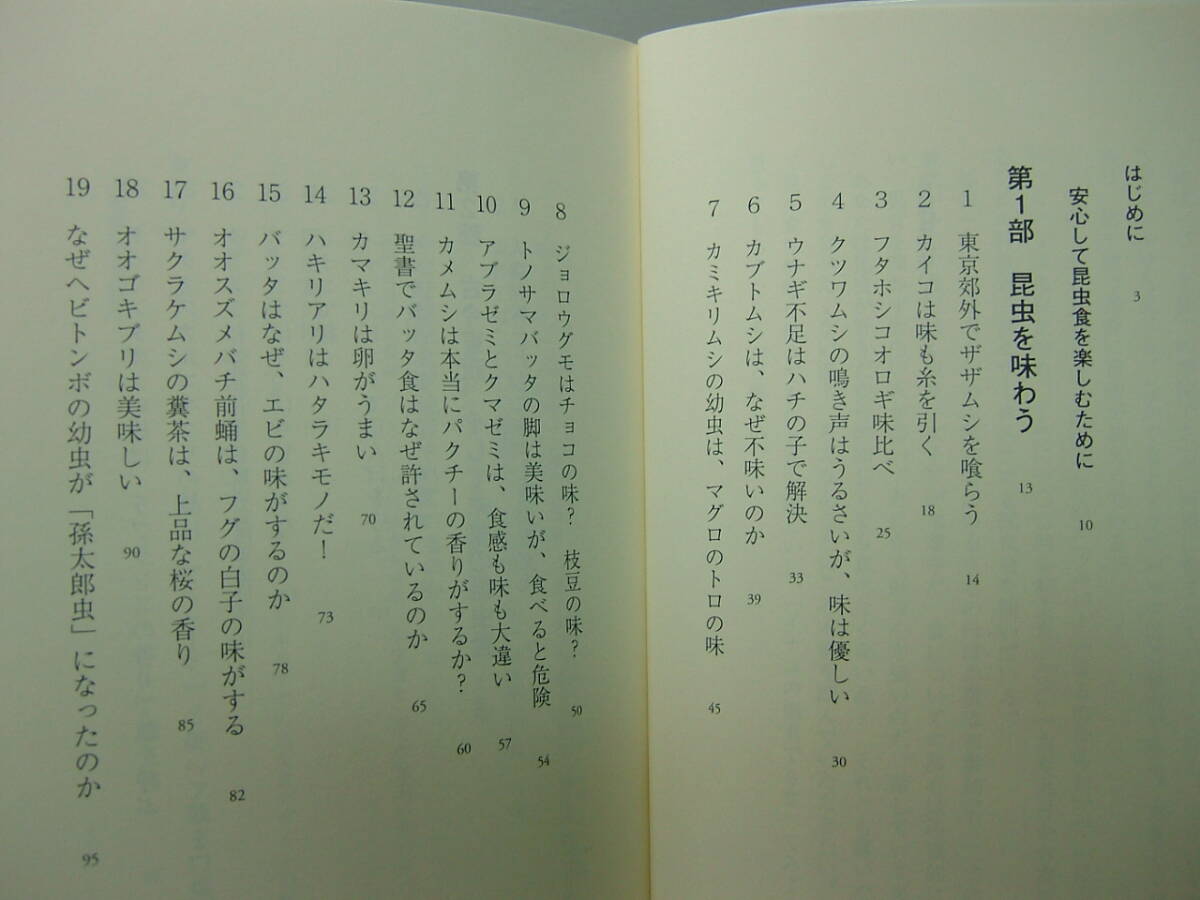 はじめに 3
安心して昆虫食を楽しむために 10
第1部 昆虫を味わう 13
1 東京郊外でザザムシを喰らう 14
2 カイコは味も糸を引く 18
3 フタホシコオロギ味比べ 25
4 クツワムシの鳴き声はうるさいが、味は優しい 30
5 ウナギ不足はハチの子で解決 33
6 カブトムシは、なぜ不味いのか 39
7 カミキリムシの幼虫は、マグロのトロの味 45
8 ジョロウグモはチョコの味? 枝豆の味? 50
9 トノサマバッタの脚は美味いが、食べると危険 54
10 アブラゼミとクマゼミは、食感も味も大違い 57
11 カメムシは本当にパクチーの香りがするか? 60
12 聖書でバッタ食はなぜ許されているのか 65
13 カマキリは卵がうまい 70
14 ハキリアリはハタラキモノだ! 73
15 バッタはなぜ、エビの味がするのか 78
16 オオスズメバチ前蛹は、フグの白子の味がする 82
17 サクラケムシの糞茶は、上品な桜の香り 85
18 オオゴキブリは美味しい 90
19 なぜヘビトンボの幼虫が「孫太郎虫」になったのか 95